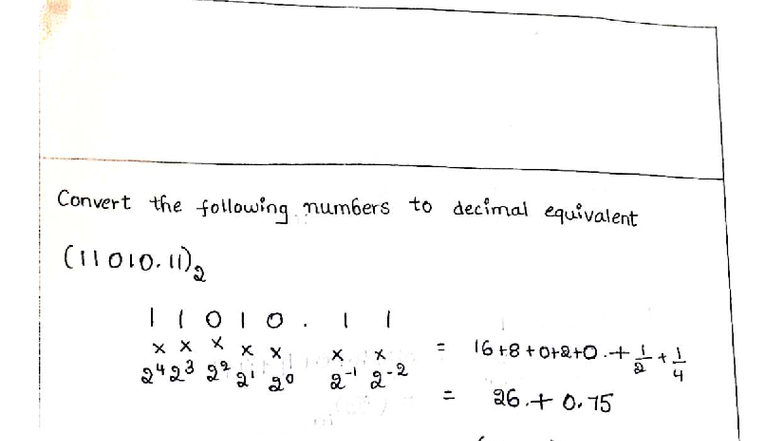 Convert the following numbers to decimal equivalent
(11010.11)₂
1 1 0 1 0 . 1 1
× × × × × × × = 16+8+0+2+0.+ 1/2 + 1/4
2⁴ 2³ 2² 2¹ 2⁰ 2⁻¹ 2⁻²
= 26.+ 0.75